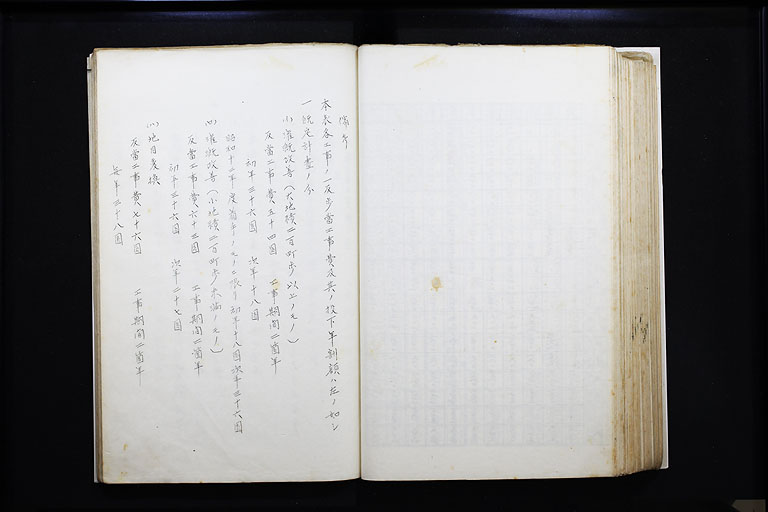 備考
本表各工事ノ一反歩当工事費及其ノ投下年割額ハ左ノ如シ
一既定計画ノ分
(イ)灌漑改善(大地積二百町歩以上ノモノ)
反当工事費五十四円 工事期間二箇年
初年三十六円 次年十八円
昭和十二年度着手ノモノニ限リ初年十八円次年三十六円
(ロ)灌漑改善(小地積二百町歩未満ノモノ)
反当工事費六十三円 工事期間二箇年
初年三十六円 次年二十七円
(ハ)地目変換
反当工事費七十六円 工事期間二箇年
毎年三十八円